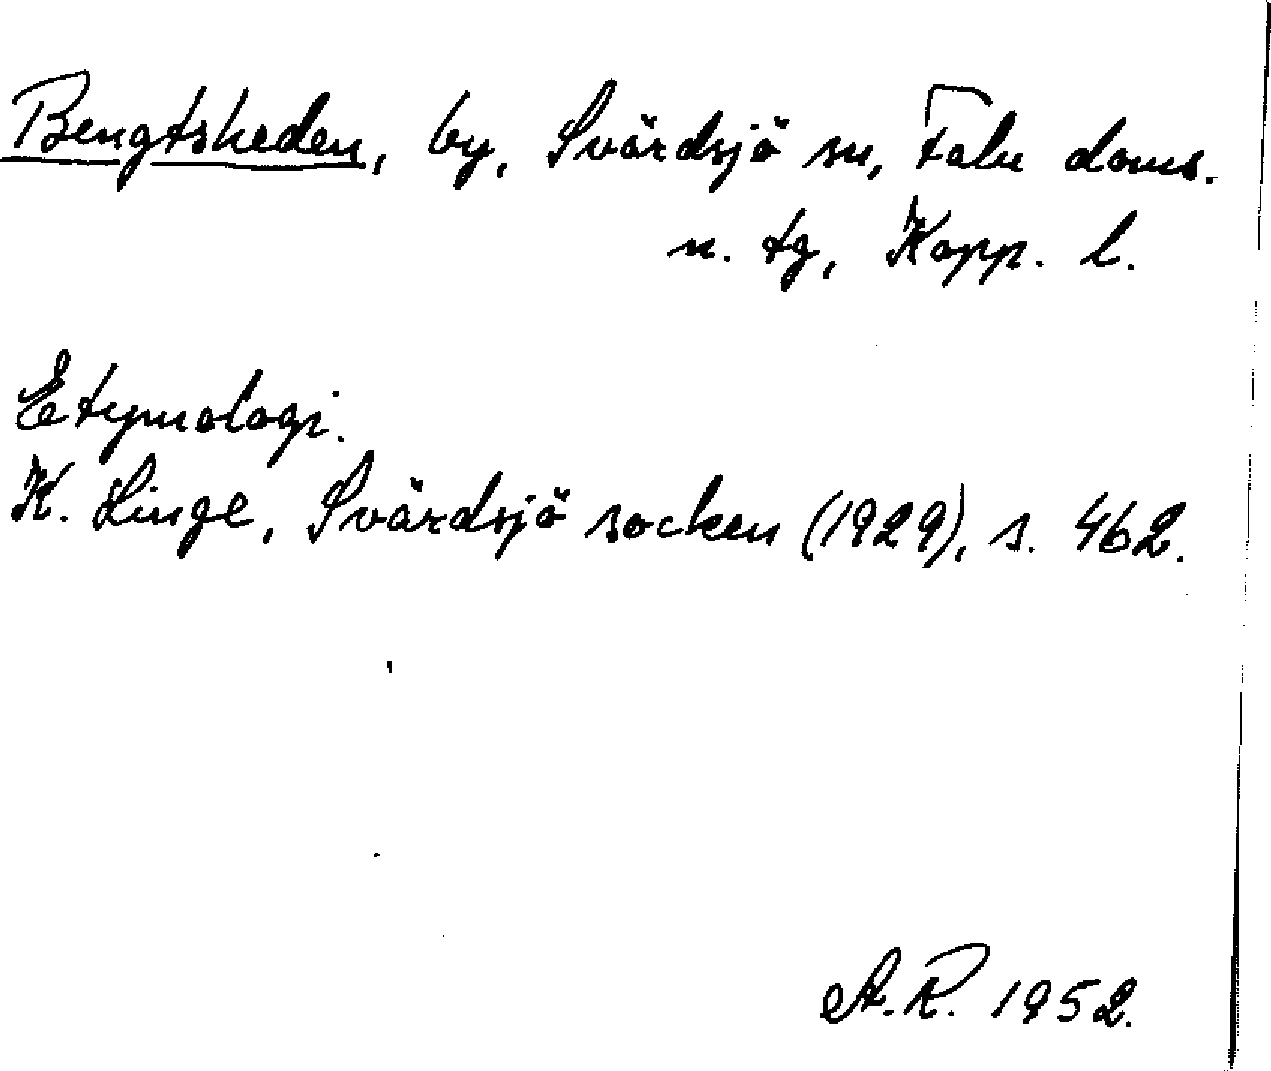 Bengtsheden, by, Svärdsjö sn, Falu doms.
n. tg, Kopp. l.
Etymologi.
K. Linge, Svärdsjö socken (1929), s. 462.
A.R. 1952.